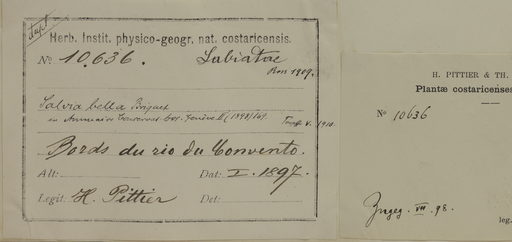 Dupl.
Herb. Instit. physico-geogr. nat. costaricensis.
Nº 10,636. Labiatae
1909.
Salvia bella Briquet
in Annuaire Conservat. bot. Genève II (1898)
V. 1910.
Bords du rio du Convento.
Alt: Dat: I. 1897.
Legit: H. Pittier Det:
H. PITTIER & TH.
Plantæ costaricenses
Nº 10636
VII 98.
leg.